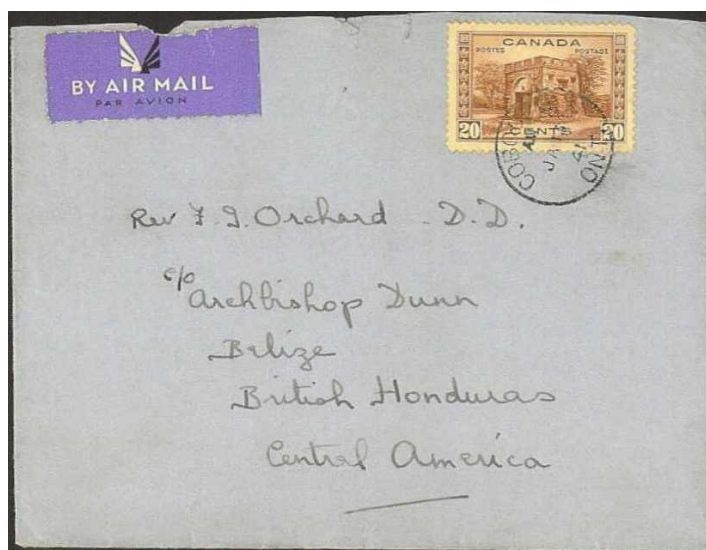 BY AIR MAIL
PAR AVION
CANADA
POSTES POSTAGE
20 CENTS 20
COBO
JA
41
ONT
Rev F. G. Orchard D.D.
c/o
Archbishop Dunn
Belize
British Honduras
Central America